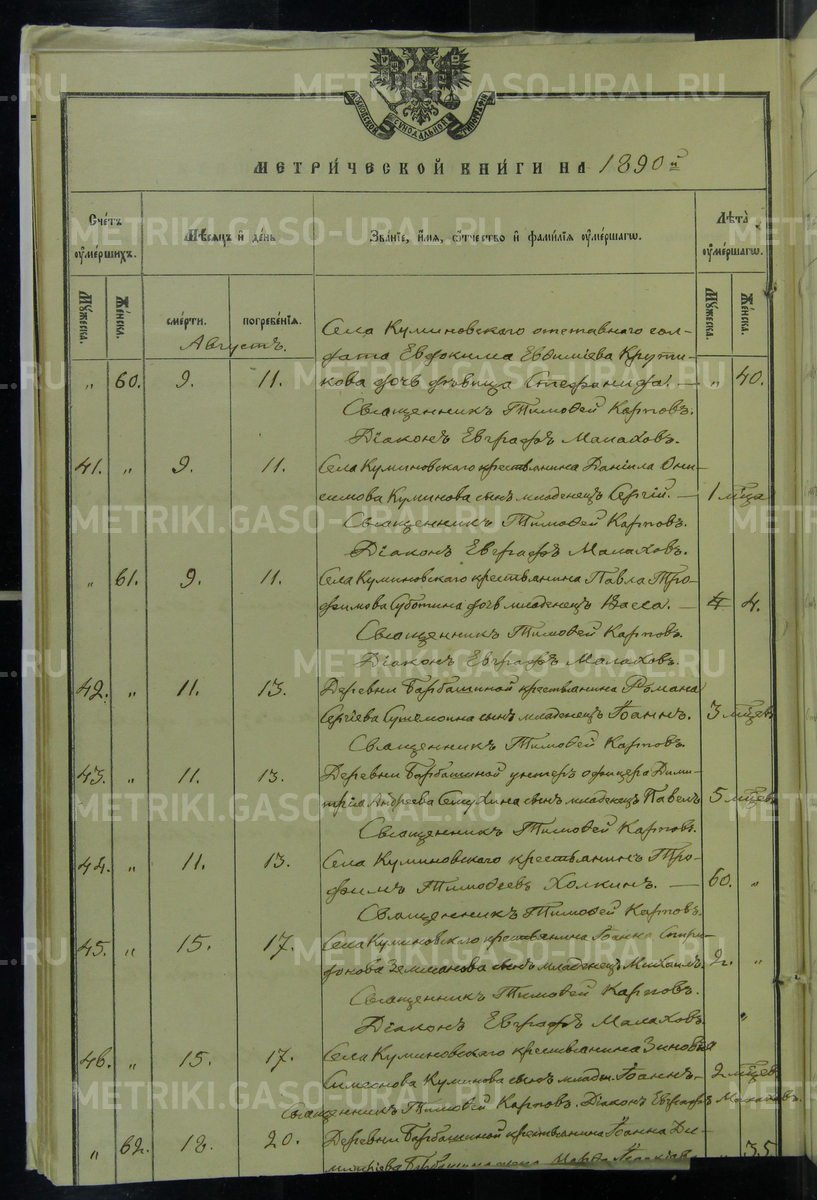 МОСКОВСКОЙ СѴНОДАЛЬНОЙ ТИПОГРАФІИ
МЕТРИ́ЧЕСКОЙ КНИ́ГИ НА 1890й
Сче́тъ ᲂу҆ме́ршихъ.
Мѣ́сяцъ и҆ де́нь
Зва́нїе, и҆́мя, ѻ҆́тчество и҆ фами́лїя ᲂу҆ме́ршагѡ.
Лѣ́та ᲂу҆ме́ршагѡ.
Мꙋ́жеска. Же́нска. сме́рти. погребе́нїя. Мꙋ́жеска. Же́нска.
Августъ.
Села Куминовскаго отставнаго сол-
дата Евдокима Евдиміева Крути-
„ 60. 9. 11. кова дочь дѣвица Стефанида. — „ 40.
Священникъ Тимоѳей Карповъ.
Діаконъ Евграфъ Малаховъ.
41. „ 9. 11. Села Куминовскаго крестьянина Даніила Они-
симова Куминова сынъ младенецъ Сергій. — 1 мѣсяца
Священникъ Тимоѳей Карповъ.
Діаконъ Евграфъ Малаховъ.
„ 61. 9. 11. Села Куминовскаго крестьянина Павла Тро-
фимова Суботина дочь младенецъ Васса. — 4.
Священникъ Тимоѳей Карповъ.
Діаконъ Евграфъ Малаховъ.
42. „ 11. 13. Деревни Барбашиной крестьянина Романа
Сергіева сынъ младенецъ Іоаннъ. 3 мѣсцевъ
Священникъ Тимоѳей Карповъ.
43. „ 11. 13. Деревни Барбашиной унтеръ офицера Дими-
трія Андреева сынъ младенецъ Павелъ 5 мѣсцевъ
Священникъ Тимоѳей Карповъ.
44. „ 11. 13. Села Куминовскаго крестьянинъ Тро-
фимъ Тимоѳеевъ Холкинъ. — 60. „
Священникъ Тимоѳей Карповъ.
45. „ 15. 17. Села Куминовскаго крестьянина Іоанна Спири-
донова Земшанова сынъ младенецъ Михаилъ. 2. „
Священникъ Тимоѳей Карповъ.
Діаконъ Евграфъ Малаховъ. „
46. „ 15. 17. Села Куминовскаго крестьянина Зиновія
Симеонова Куминова сынъ младен. Іоаннъ. 2 мѣсцев
Священникъ Тимоѳей Карповъ. Діаконъ Евграфъ Малаховъ.
„ 62. 18. 20. Деревни Барбашиной крестьянина Іоанна Ди-
митріева Барбашина жена „ 35
METRIKI.GASO-URAL.RU